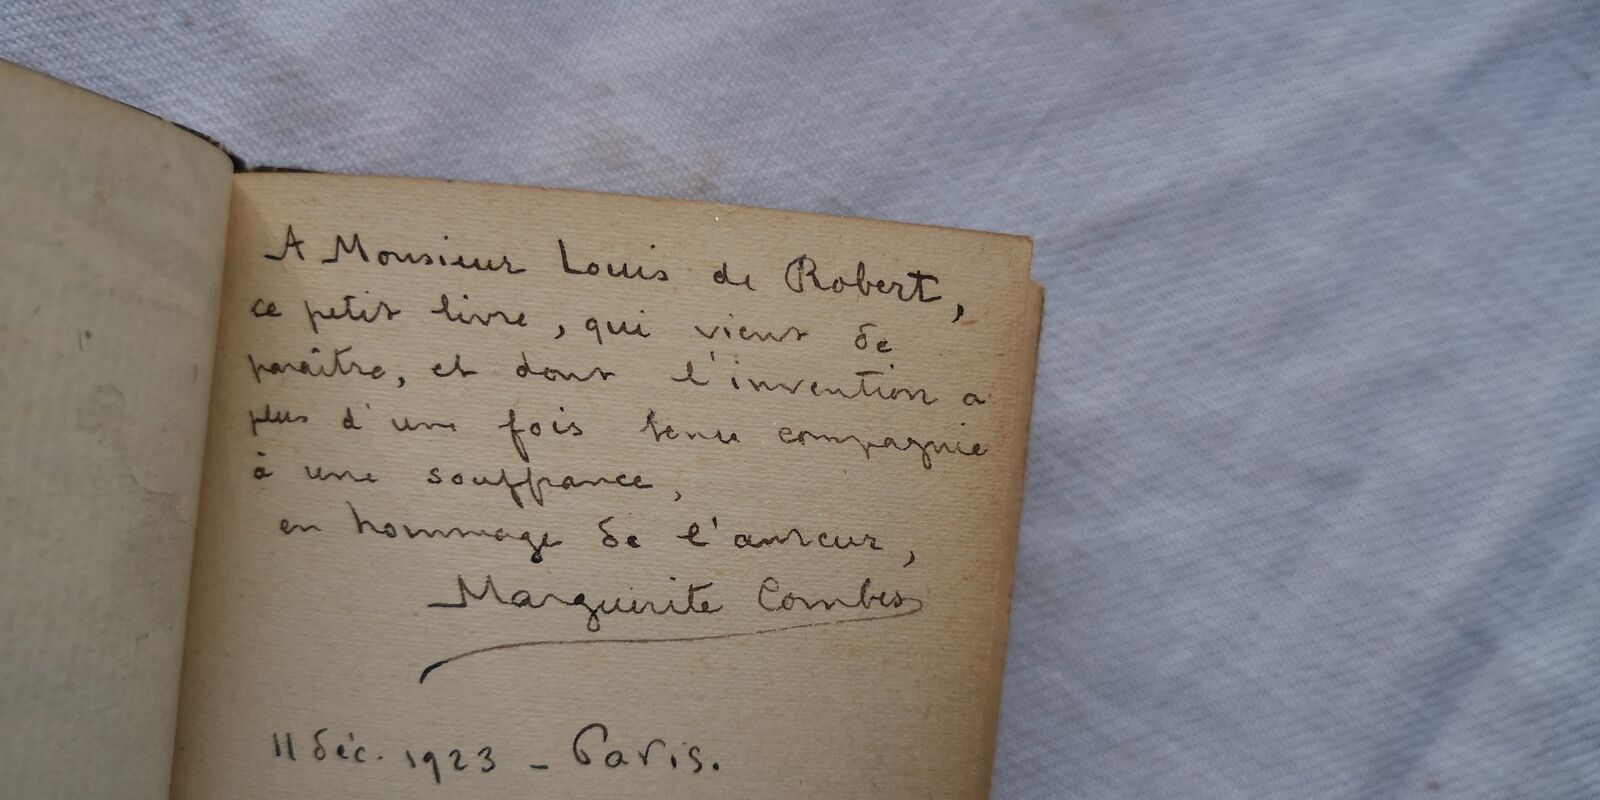 A Monsieur Louis de Robert,
ce petit livre, qui vient de
paraître, et dont l'invention a
plus d'une fois tenu compagnie
à une souffrance,
en hommage de l'auteur,
Marguerite Combes
11 déc. 1923 - Paris.